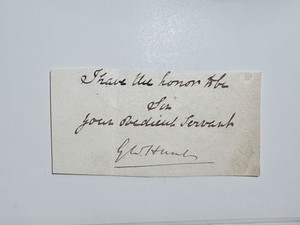 I have the honor to be
Sir
your obedient Servant
G W Hunt